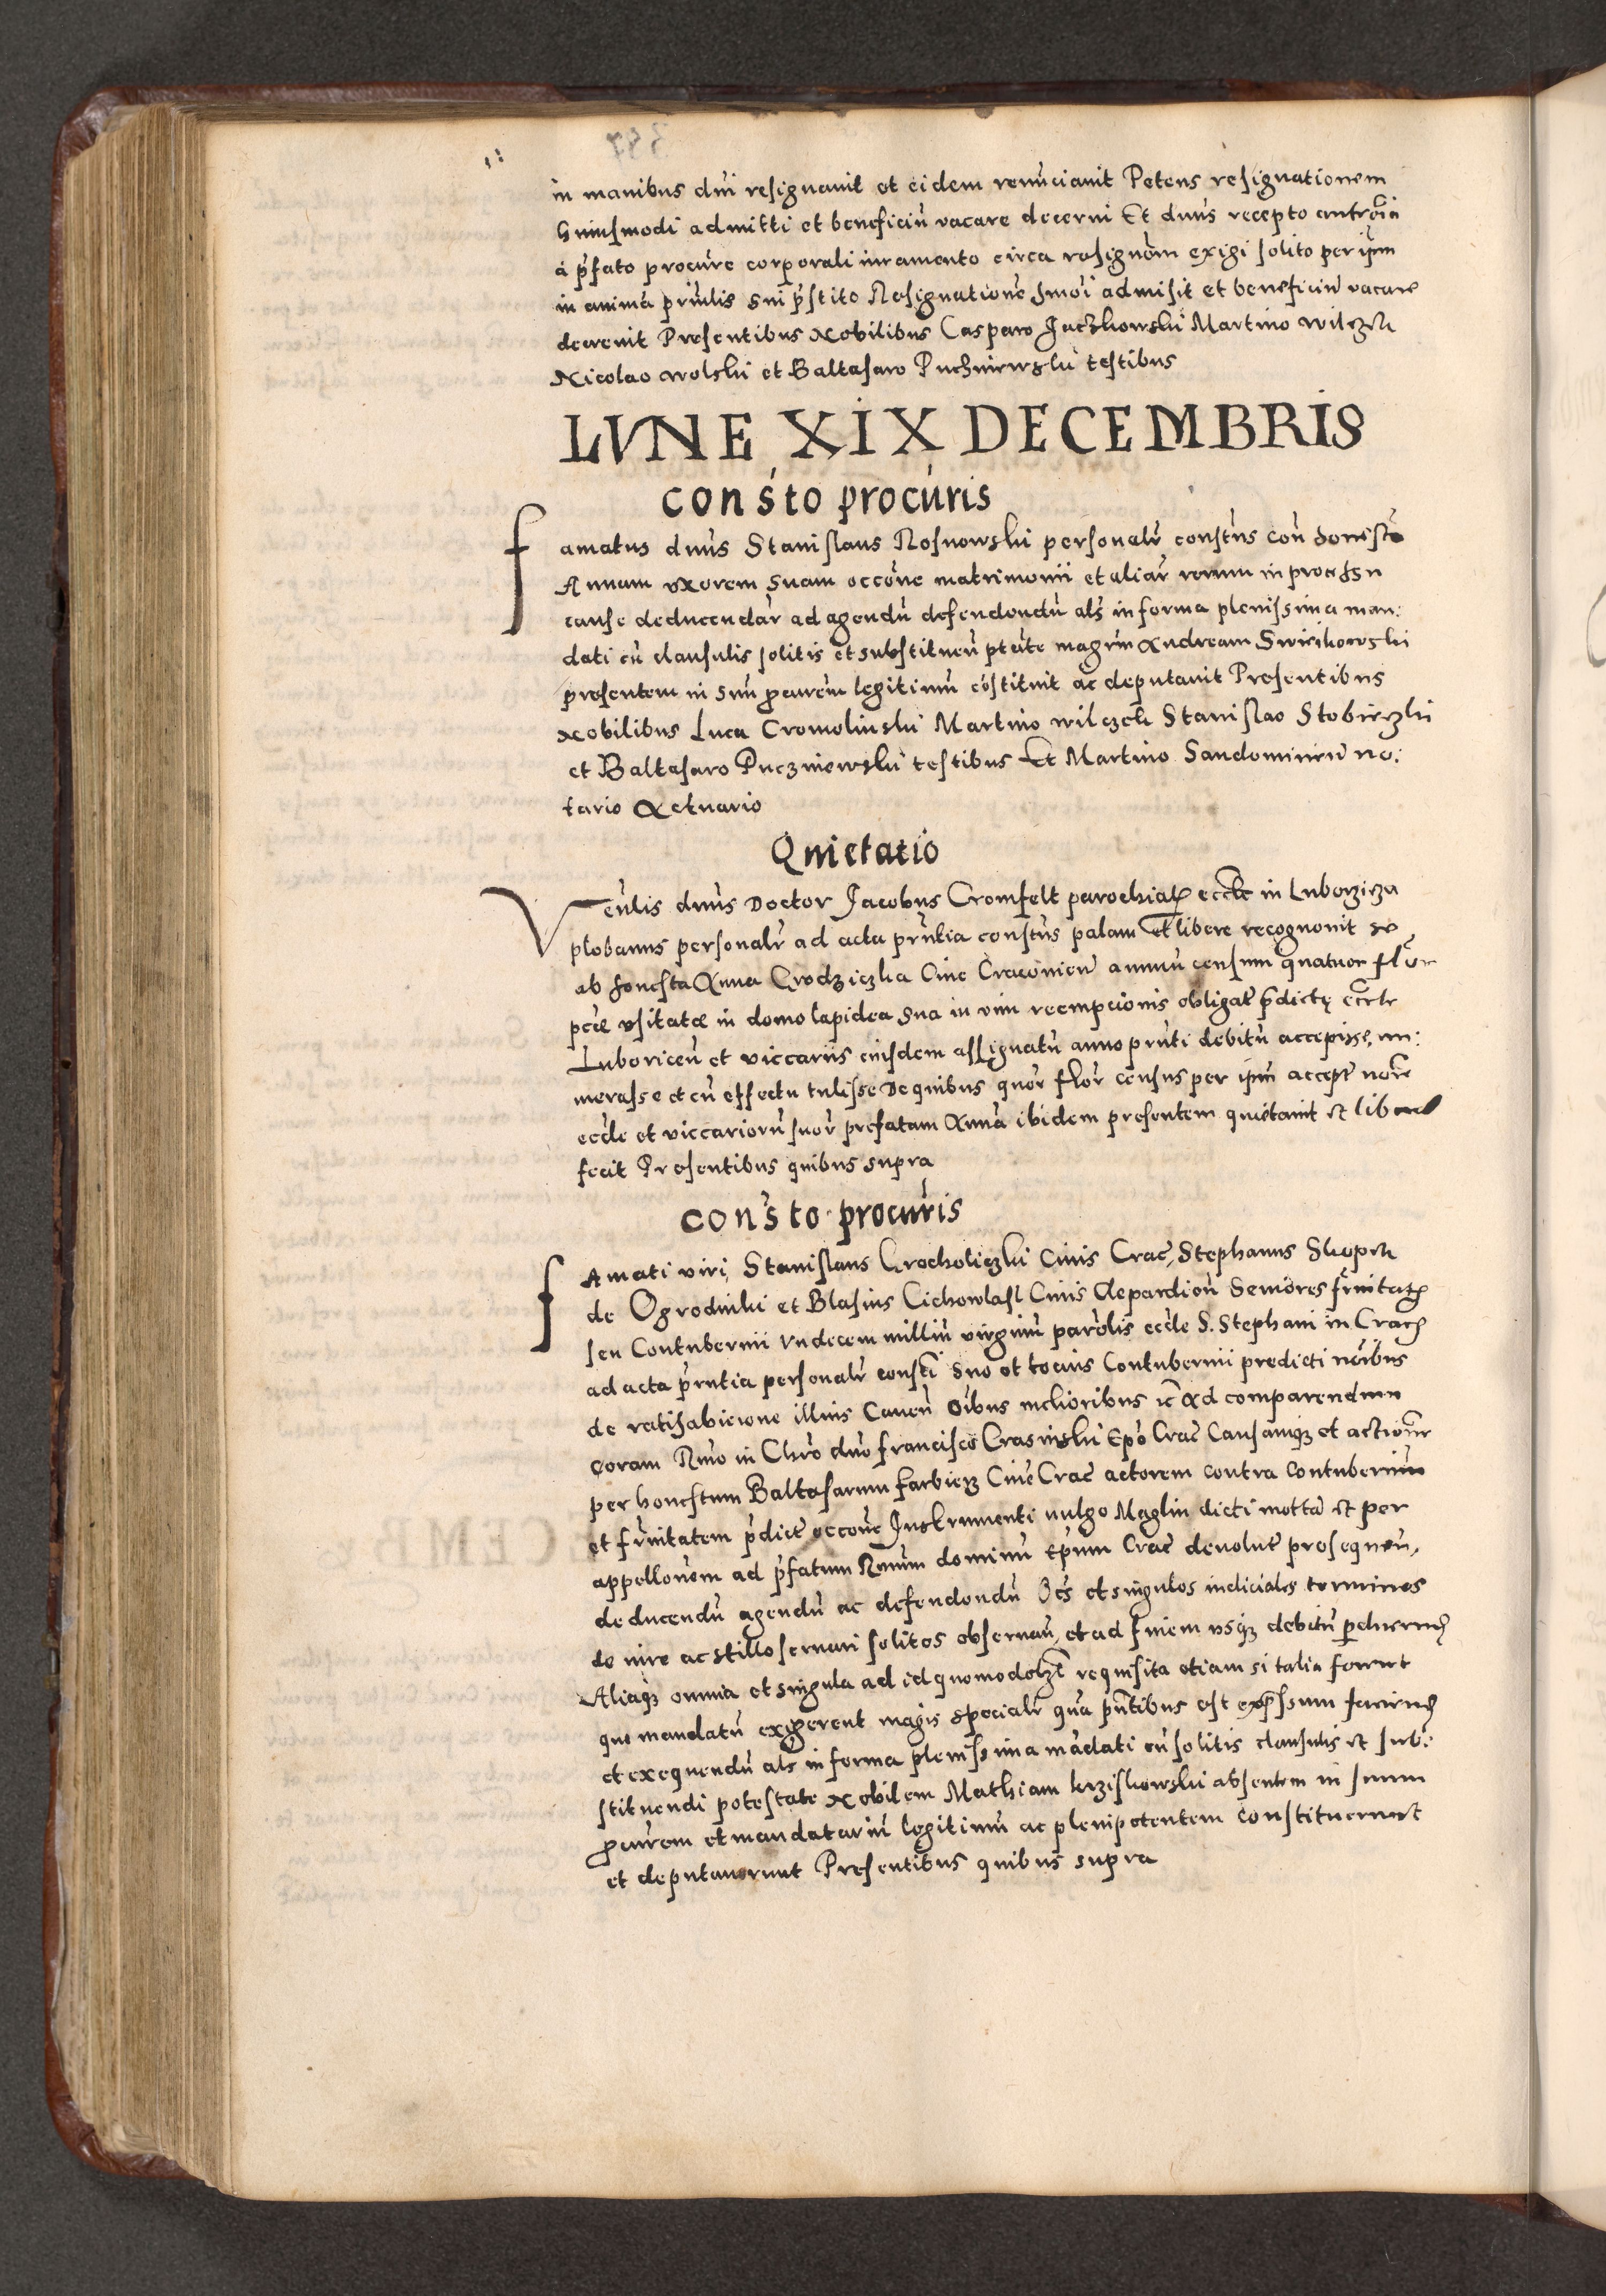 in manibus dni resignavit et eidem renuciavit Petens resignationem
huiusmodi admitti et beneficiu vacare decerni Et dnus recepto
a pfato procure corporali iuramento circa resignom exigi solito per ipm
in anima prinlis sui pstito Resignatione hmoi admisit et beneficiu vacare
decrevit Presentibus Nobilibus Casparo Jaczkowski Martino wilczek
Nicolao wolski et Baltasaro Puczniewski testibus
LVNE XIX DECEMBRIS
consto procuris
Famatus dnus Stanislaus Rosnowski personalr constus con honesta
Annam vxorem suam occone matrimonii et aliar rerum in processu
cause deducendar ad agendu defendendu als in forma plenissima man:
dati cu clausulis solitis et substituen ptate magrm Andream
presentem in suu pcurem legitimu costituit ac deputavit Presentibus
Nobilibus Luca Cromolinski Martino wilczek Stanislao
et Baltasaro Puczniewski testibus Et Martino Sandomirien no:
tario Actuario
Quietatio
Venlis dnus Doctor Jacobus Cromfelt parochial eccle in Luborzicza
plebanus personalr ad acta prntia constus palam et libere recognovit se
ab honesta Anna Grodziczka Cive Cracovien annuu censum quatuor flor
pcie vsitatae in domo lapidea sua in vim reempcionis obligat pdicte eccle
Luboricen et viccariis eiusdem assignatu anno prnti debitu accepisse, nu:
merasse et cu effectu tulisse De quibus quor flor census per ipm accept noie
eccle et viccarioru suor prefatam Anna ibidem presentem quietavit et libera
fecit Presentibus quibus supra
consto procuris
Famati viri, Stanislaus Grocholiczki Civis Crac, Stephanus Skopek
de Ogrodniki et Blasius Cichowlasl Civis Clepardien Seniores frnitatis
seu Contubernii vndecem milliu virginu parolis eccle S. Stephani in Crac
ad acta prntia personalr consti suo et tocius Contubernii predicti noibus
de ratihabicione illius Caven Oibus melioribus ic Ad comparendum
coram Rmo in Chro dno francisco Crasinski Epo Crac Causamq et actione
per honestum Baltasarum farbierz Cive Crac actorem contra Contuberniu
et frnitatem pdict occone Instrumenti vulgo Maglin dicti motta et per
appellonem ad pfatum Rmum dominu Epum Crac devolut prosequen,
deducendu agendu ac defendendu Oes et singulos iudiciales terminos
de iure ac stillo servari solitos observan, et ad finem vsq debitu
Aliaq omnia et singula ad id quomodolz requisita etiam si talia forent
que mandatu exigerent magis specialr qua pntibus est expssum
et exequendu als in forma plenissima madati cu solitis clausulis et sub:
stituendi potestate Nobilem Mathiam krziskowski absentem in suum
pcurem et mandatariu legitimu ac plenipotentem constituerunt
et deputaverunt Presentibus quibus supra